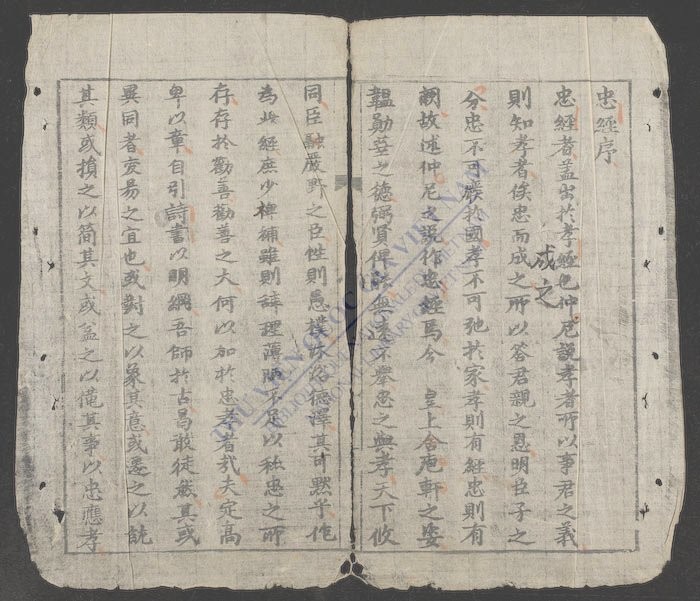 忠經序
忠經者盖出於孝經也仲尼說孝者所以事君之義
則知孝者俟忠而成之所以答君親之恩明臣子之
成之
分忠不可廢於國孝不可弛於家孝則有經忠則有
闕故述仲尼之說作忠經焉今 皇上含庖軒之姿
韞勛華之德弼賢俾能無遠不舉忠之與孝天下攸
同臣融嚴野之臣性則愚樸沐浴德澤其可默乎作
為此經庶少裨補雖則辞理薄陋不足以私忠之所
存存於勸善勸善之大何以加於忠孝者哉夫定高
卑以章自引詩書以明綱吾師於古曷敢徒然其或
異同者变易之宜也或對之以象其意或遷之以就
其類或損之以簡其文或益之以俻其事以忠應孝
THƯ VIỆN QUỐC GIA VIỆT NAM